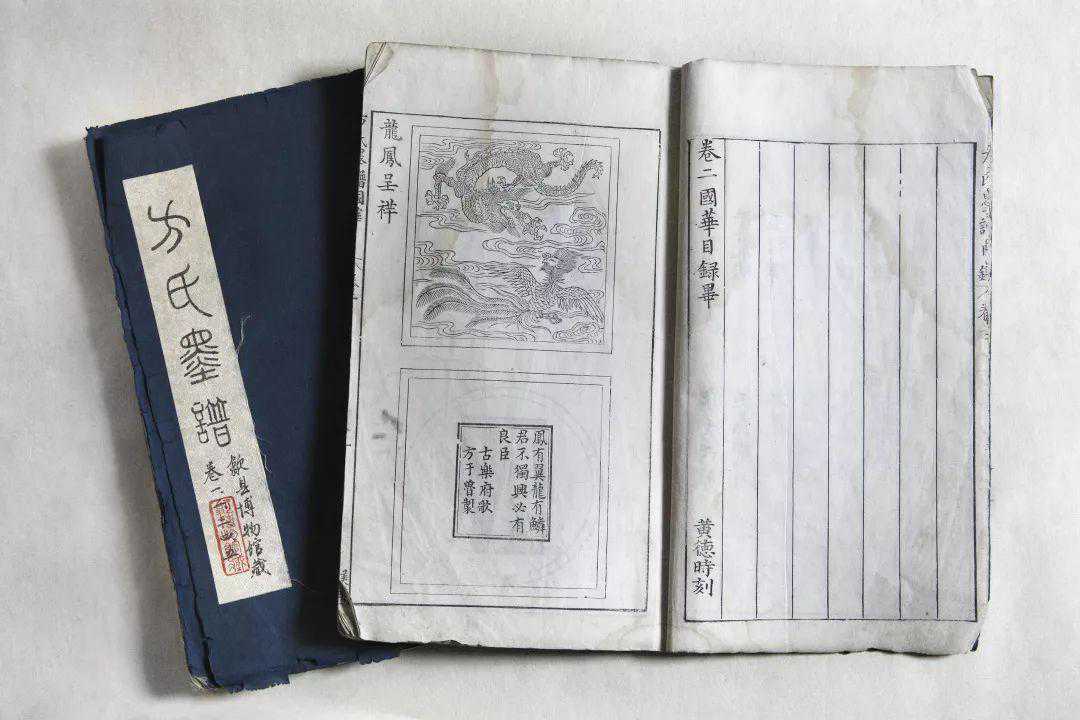 方氏墨譜
卷一
歙县博物馆藏
卷二國華目録畢
黃德時刻
龍鳳呈祥
鳳有翼龍有鱗
君不獨興必有
良臣
古樂府歌
方于魯製